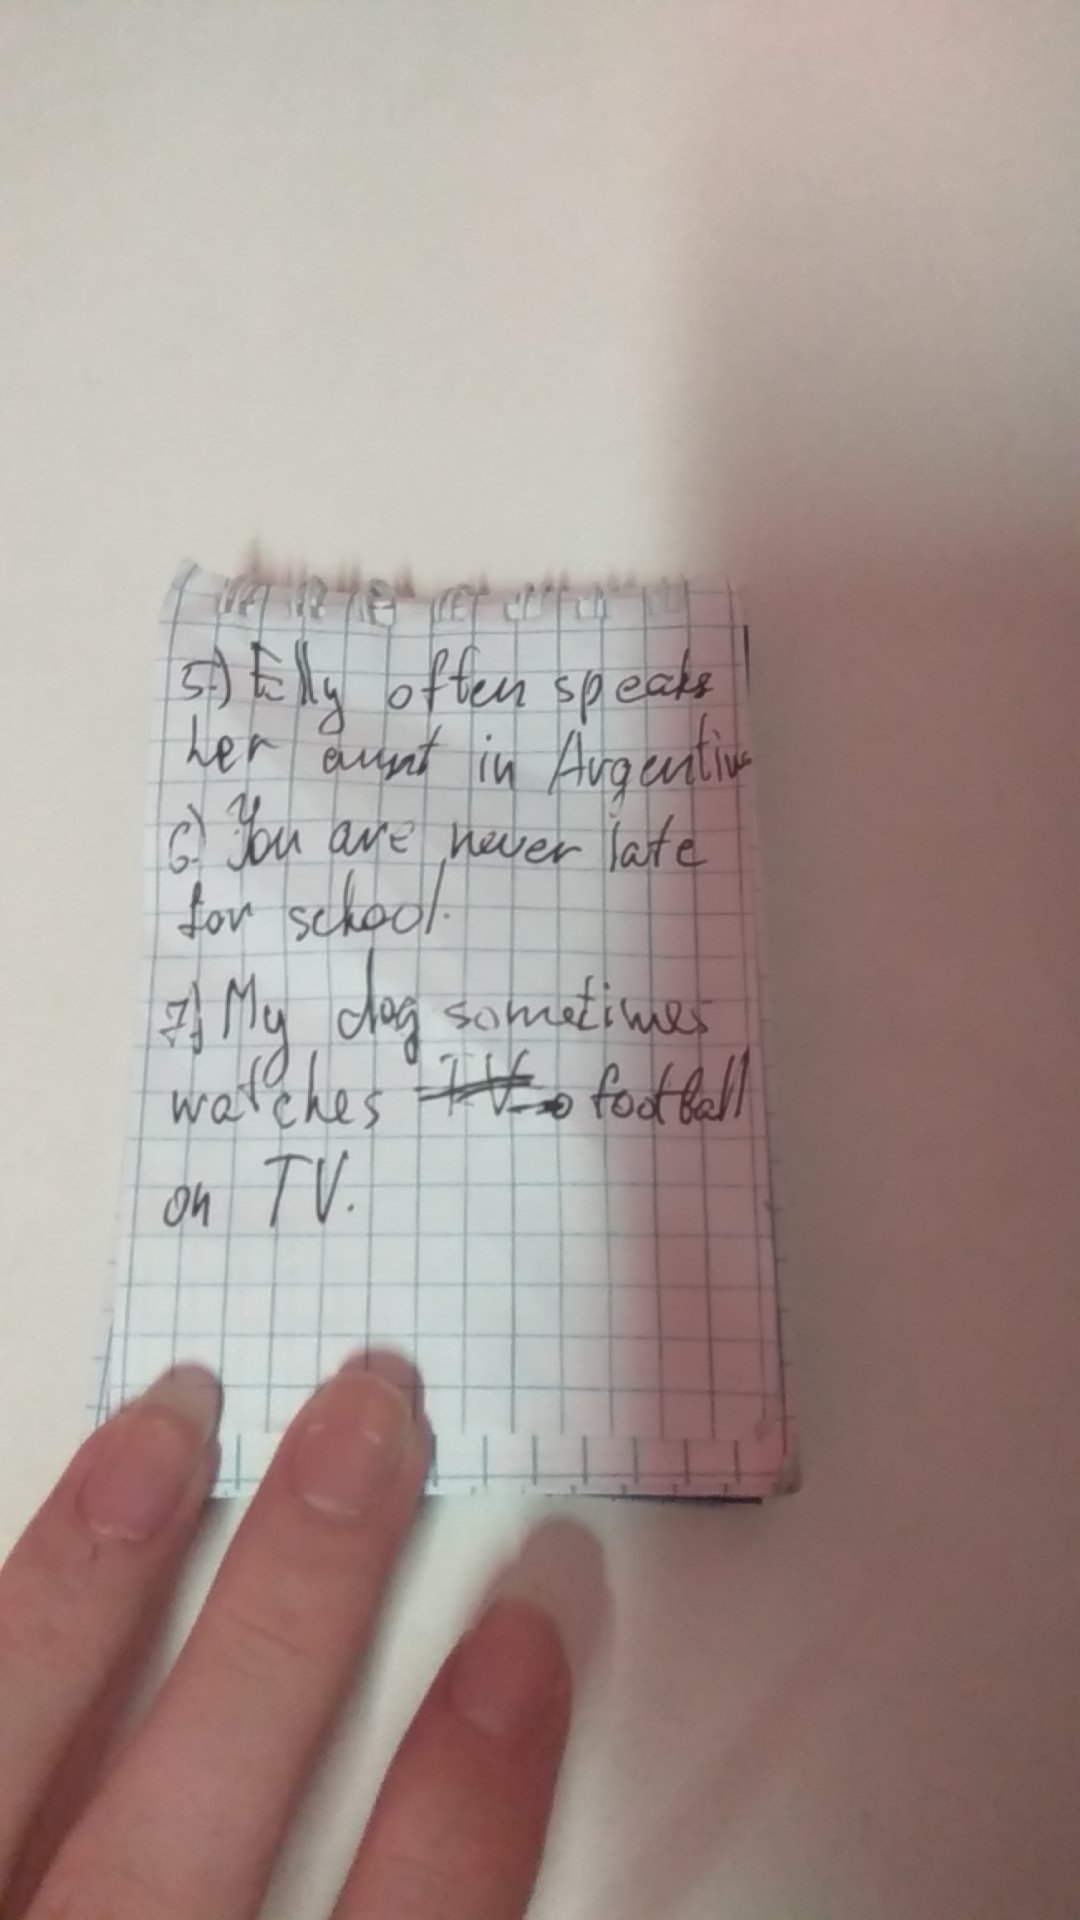 5) Elly often speaks
her aunt in Argentina
6) You are never late
for school.
7) My dog sometimes
watches TV football
on TV.